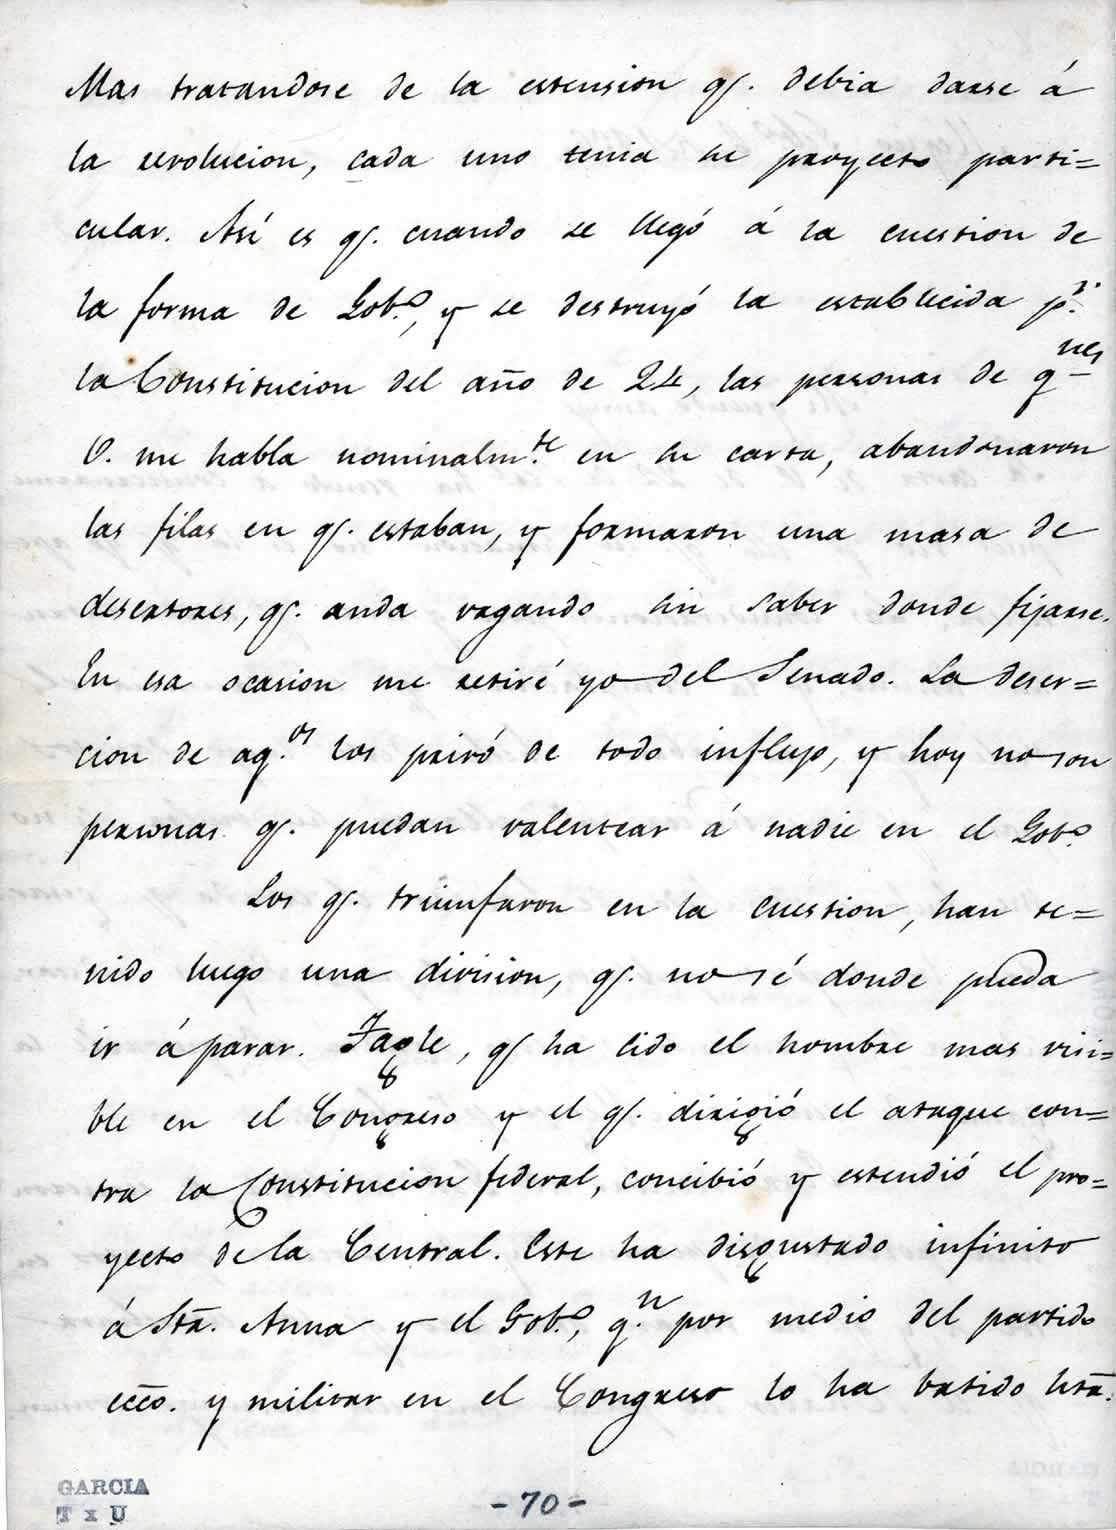 Mas tratandose de la estension qᵉ. debia darse á
la revolucion, cada uno tenia su proyecto parti=
cular. Así es qᵉ. cuando se llegó á la cuestion de
la forma de Gob.º, y se destruyó la establecida p.ʳ
la Constitucion del año de 24, las personas de qⁿᵉˢ
V. me habla nominalm.ᵗᵉ en su carta, abandonaron
las filas en qᵉ. estaban, y formaron una masa de
desertores, qᵉ. anda vagando sin saber donde fijarse.
En esa ocasion me retiré yo del Senado. La deser=
cion de aq.ᵒˢ los privó de todo influjo, y hoy no son
personas qᵉ. puedan valentear á nadie en el Gob.º
Los qᵉ. triunfaron en la cuestion, han te=
nido luego una division, qᵉ. no sé donde pueda
ir á parar. Tagle, qᵉ ha sido el hombre mas visi=
ble en el Congreso y el qᵉ. dirigió el ataque con=
tra la Constitucion federal, concibió y estendió el pro=
yecto de la Central. Este ha disgustado infinito
á Sta. Anna y el Gob.º, q.ⁿ por medio del partido
ecco. y militar en el Congreso lo ha batido hta.
GARCIA
T x U
-70-